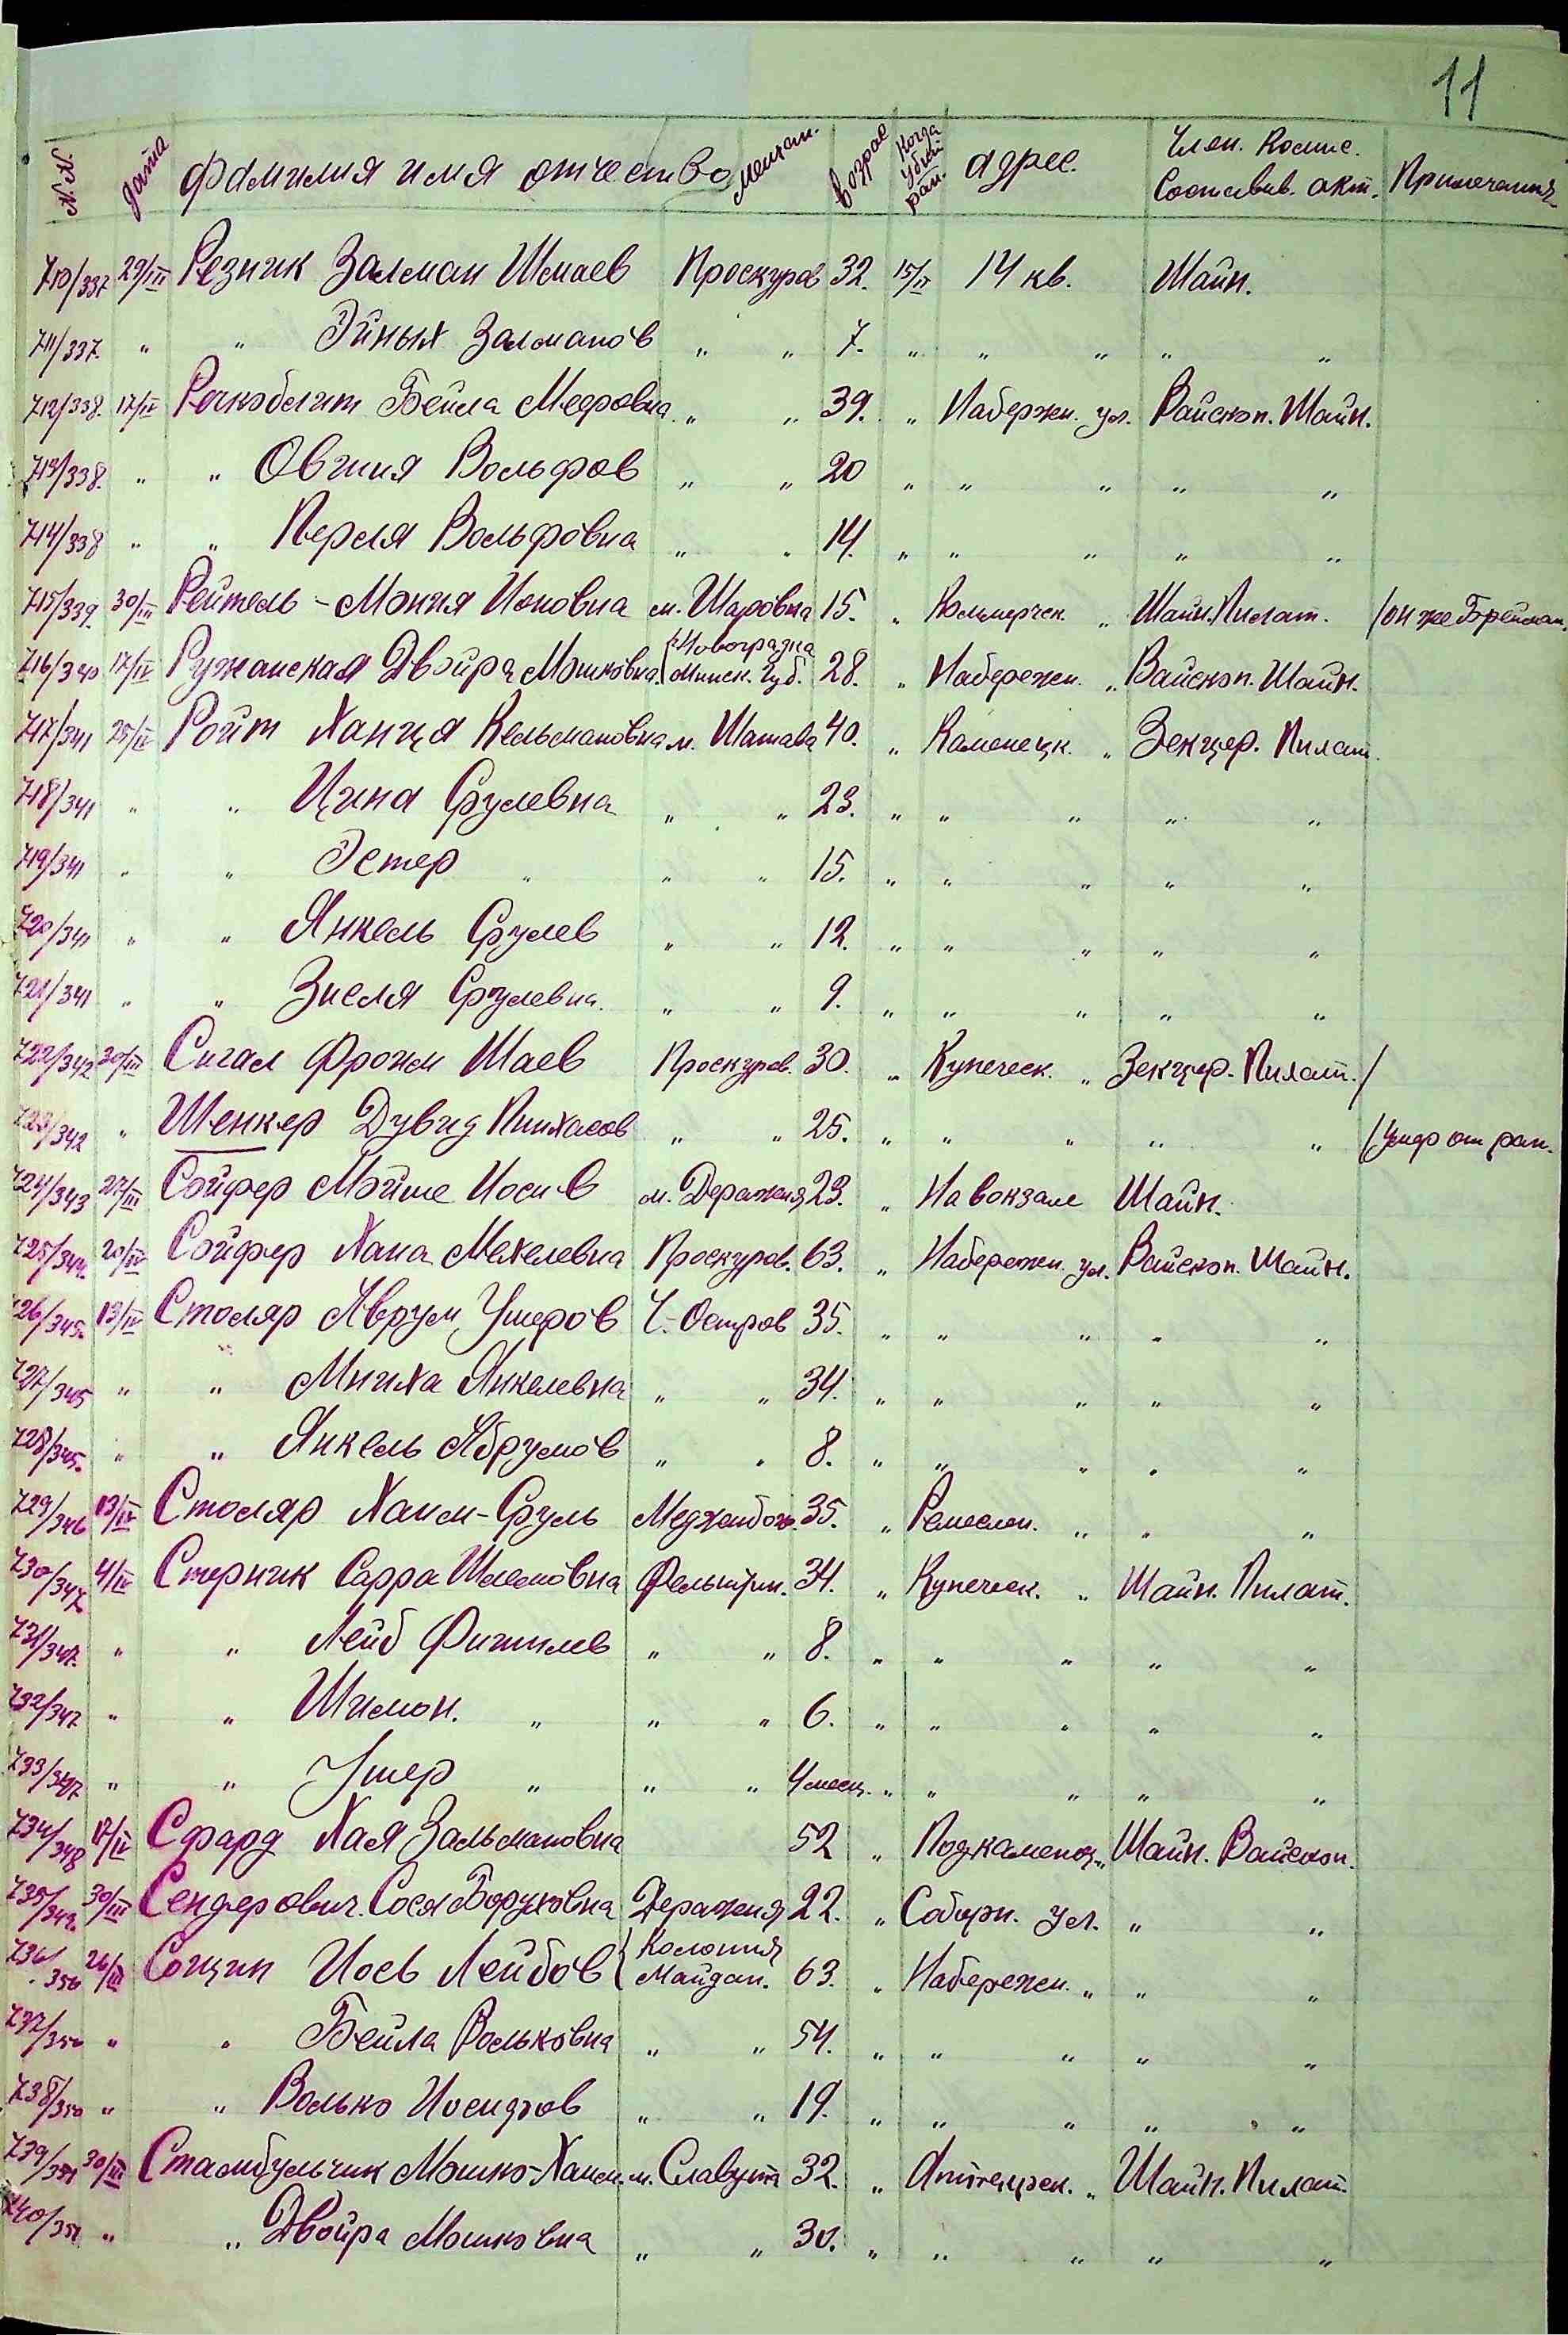 11
N.N. Дата Фамилия имя отчество Мещан. Возрас Когда убит ран. Адрес. Член. Комис. Составив. акт. Примечания
710/337 29/III Резник Залман Шмаев Проскуров 32. 15/II 14 кв. Шайн.
711/337. " " Эйных Залманов " " 7. " " " " "
712/338. 17/IV Бейла Мееровна " " 39. " Набержн. ул. Вайскоп. Шайн.
713/338. " " Овшия Вольфов " " 20 " " " " "
714/338 " " Перля Вольфовна " " 14. " " " " "
715/339. 30/III Рейтель-Мэния Ионовна м. Шаровка 15. " Коммерчек. " Шайн. Пилат. /он же Брейман.
716/340 17/IV Ружанская Двойра Мошковна. {Новоградка Минск. Губ. 28. " Набережн. " Вайскоп. Шайн.
717/341 25/IV Ройт Ханця Кельмановна м. Шатава 40. " Каменецк. " Зекцер. Пилат.
718/341 " " Цина Срулевна " " 23. " " " " "
719/341 " " Эстер " " " 15. " " " " "
720/341 " " Янкель Срулев " " 12. " " " " "
721/341 " " Зисля Срулевна. " " 9. " " " " "
722/342 30/III Сигал Фроим Шаев Проскуров. 30. " Купеческ. " Зекцер. Пилат. /
723/342 " Шенкер Дувид Пинхасов " " 25. " " " " " /умер от ран.
724/343 27/III Сойфер Мойше Иосиев м. Деражня 23. " На вокзале Шайн.
725/344. 20/IV Сойфер Хана Мехелевна Проскуров. 63. " Набережн. ул. Вайскоп. Шайн.
726/345. 13/IV Столяр Аврум Ушеров Ч.-Остров 35. " " " " "
727/345 " " Миниха Янкелевна " " 34. " " " " "
728/345. " " Янкель Абрумов " " 8. " " " " "
729/346 13/IV Столяр Хаим-Сруль Меджибож. 35. " Ремеслен. " " "
730/347 4/IV Стерник Сарра Шлемовна Фельштин. 34. " Купеческ. " Шайн. Пилат.
731/347. " " Лейб Фишилев " " 8. " " " " "
732/347 " " Шимон. " " " 6. " " " " "
733/347 " " Ушер " " " 4 месц. " " " " "
734/348 17/IV Сфард Хая Зальмановна 52 " Подкаменец. " Шайн. Вайскоп.
735/349. 30/III Сендерович. Сося Боруховна Деражня 22. " Соборн. ул. " "
736/350 26/III Сощин Иось Лейбов {Колония Майдан. 63. " Набережн. " " "
737/350 " " Бейла Вольковна " " 54. " " " " "
738/350 " " Волько Иосифов " " 19. " " " " "
739/351 30/III Стамбульчик Мошко-Хаим. м. Славута 32. " Аптецрск. " Шайн. Пилат.
740/351 " " Двойра Мошковна " " 30. " " " " "